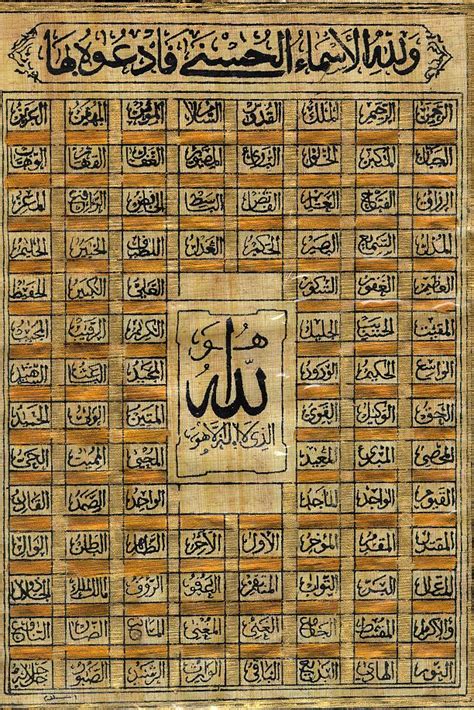 ولله الأسماء الحسنى فادعوه بها
الرحمن الرحيم الملك القدوس السلام المؤمن المهيمن العزيز
الجبار المتكبر الخالق البارئ المصور الغفار القهار الوهاب
الرزاق الفتاح العليم القابض الباسط الخافض الرافع المعز
المذل السميع البصير الحكم العدل اللطيف الخبير الحليم
العظيم الغفور الشكور العلي الكبير الحفيظ
المقيت الحسيب الجليل الكريم الرقيب المجيب
الواسع الحكيم الودود المجيد الباعث الشهيد
الحق الوكيل القوي المتين الولي الحميد
المحصي المبدئ المعيد المحيي المميت الحي
القيوم الواجد الماجد الواحد الصمد القادر
هو
الله
الذي لا إله إلا هو
المقتدر المقدم المؤخر الأول الآخر الظاهر الباطن الوالي
المتعال البر التواب المنتقم العفو الرؤوف مالك الملك ذو الجلال
والإكرام المقسط الجامع الغني المغني المانع الضار النافع
النور الهادي البديع الباقي الوارث الرشيد الصبور جل جلاله